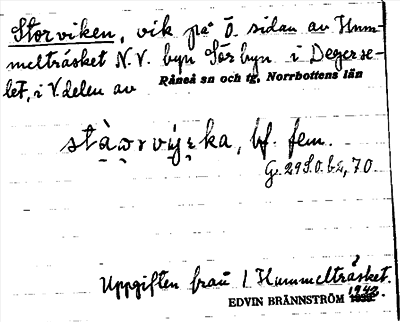 Storviken, vik på Ö. sidan av Hum-
melträsket N.V. byn Sörbyn i Degerse-
let, i V. delen av
Råneå sn och tg, Norrbottens län
bf. fem.
Uppgiften från 1 Hummelträsket.
EDVIN BRÄNNSTRÖM 1942